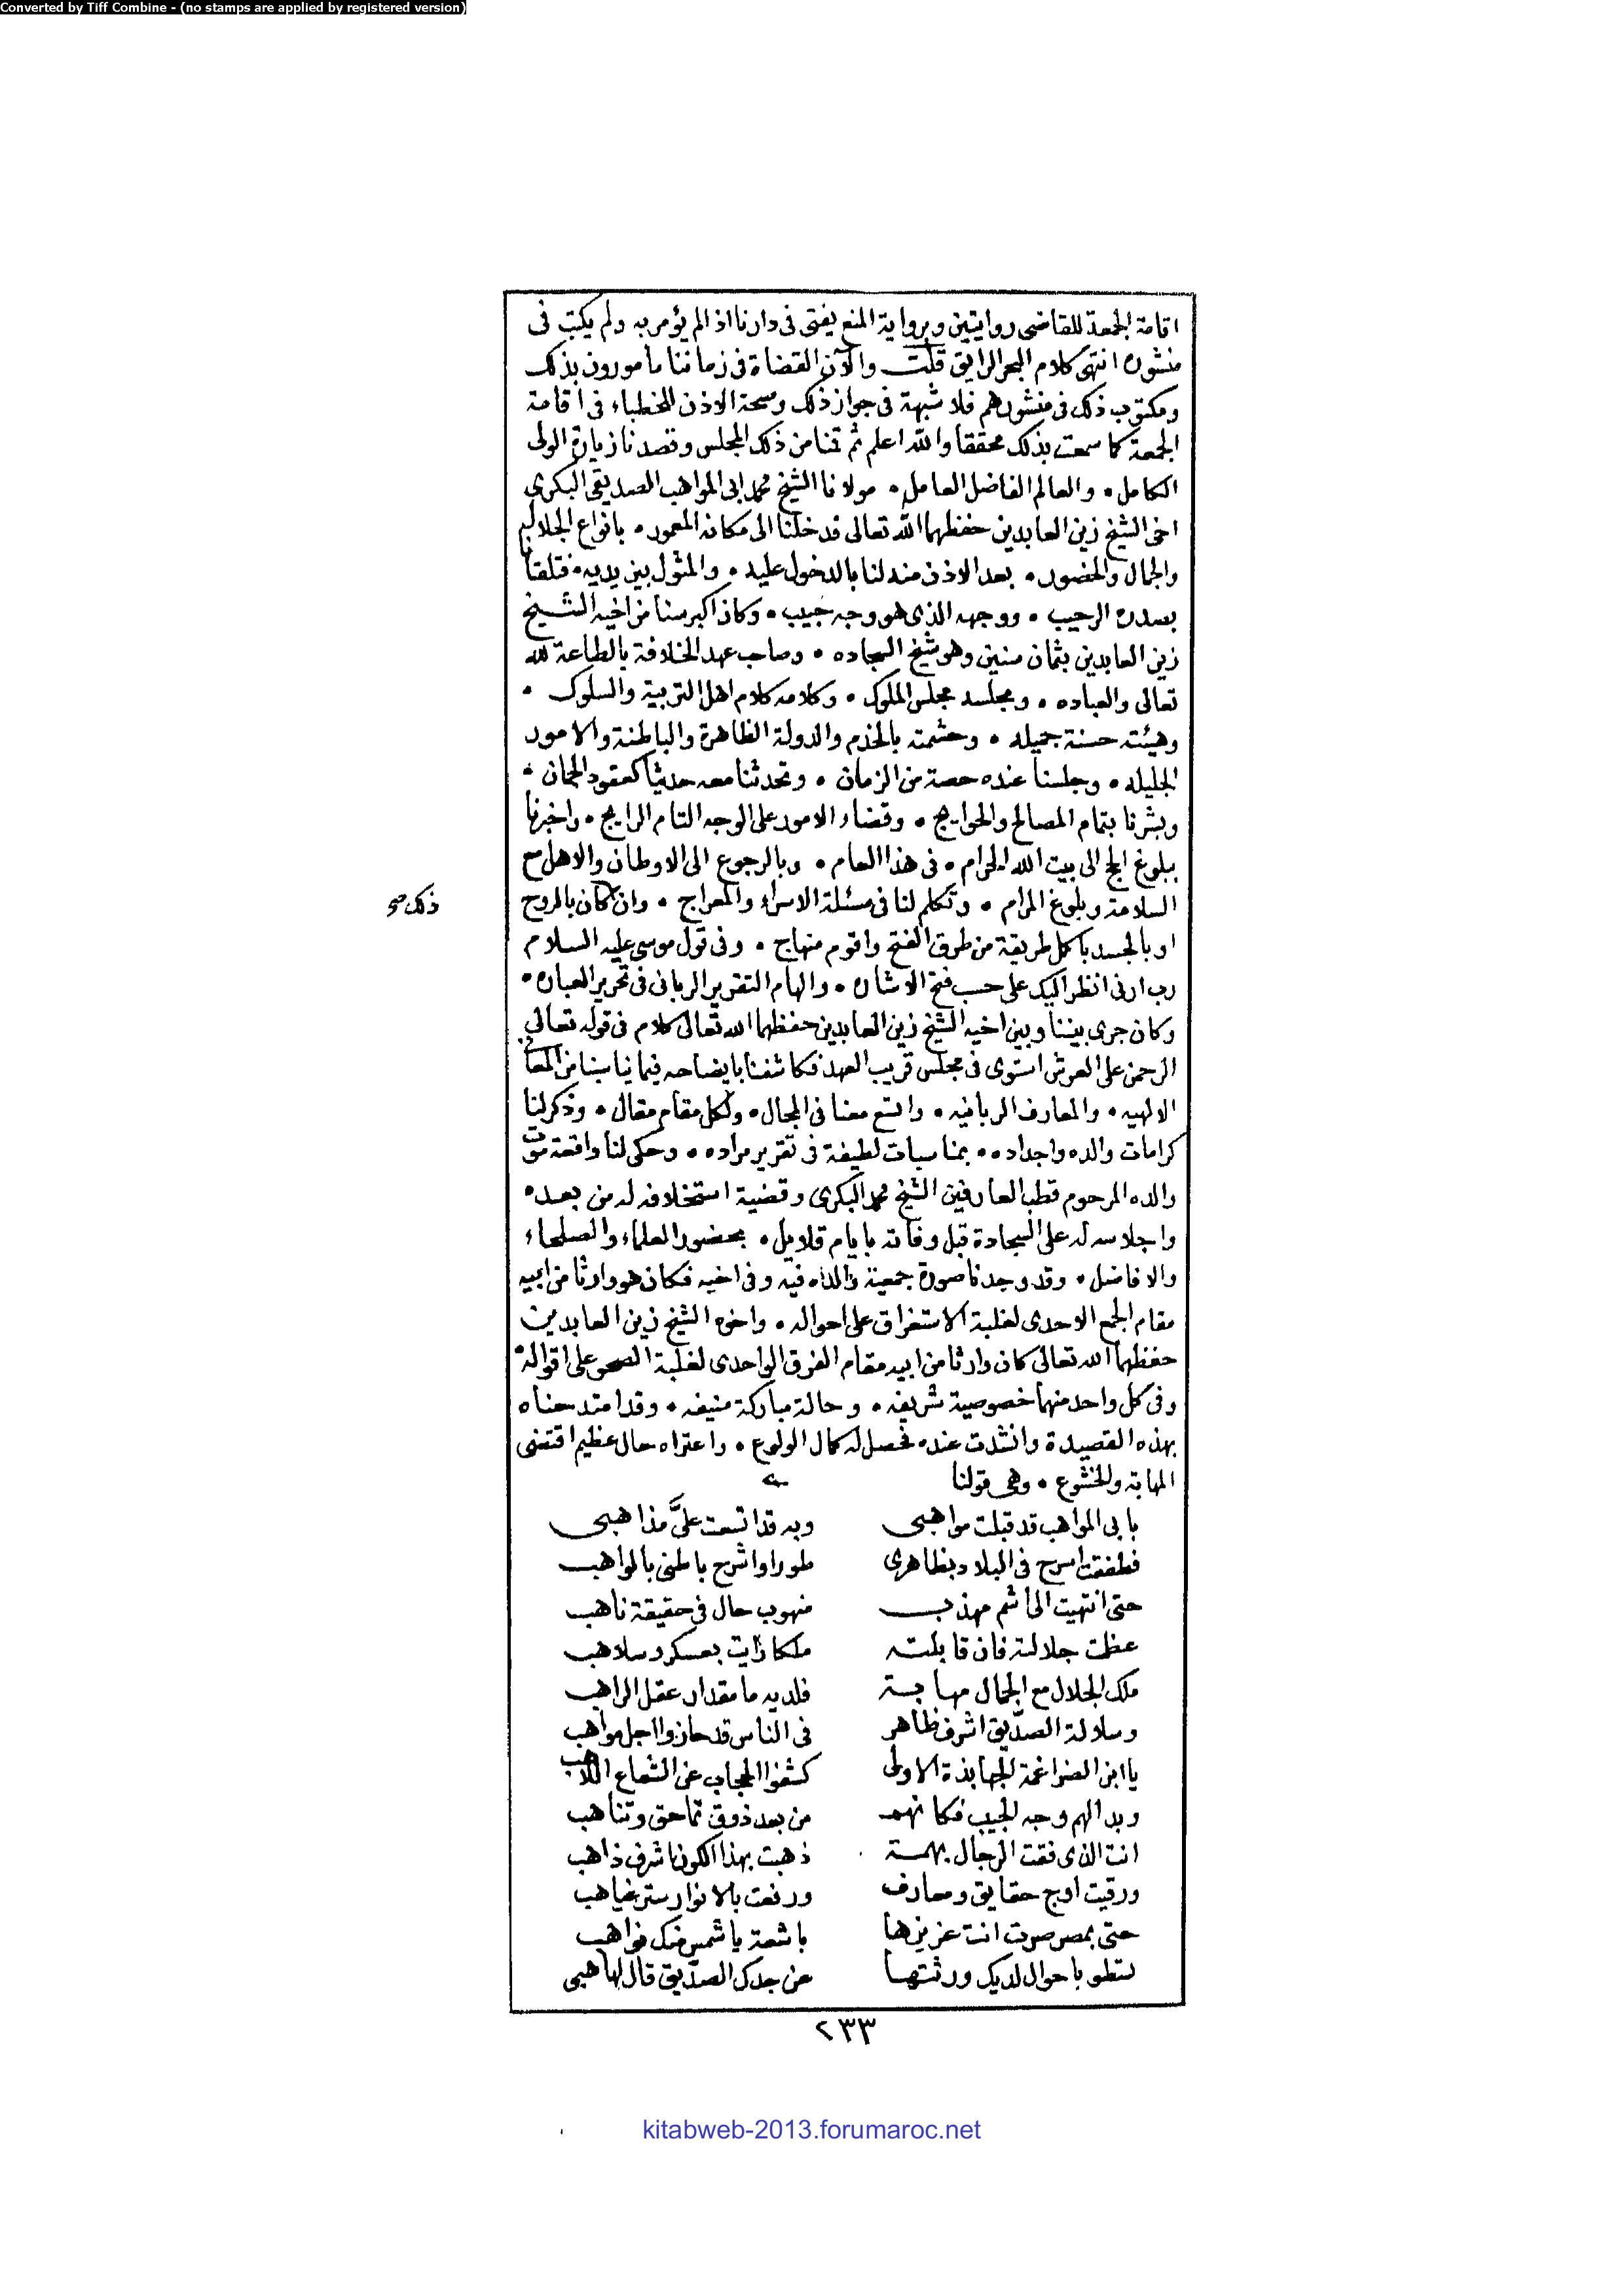 Converted by Tiff Combine - (no stamps are applied by registered version)
اقامة الجمعة للقاضى روايتين وبرواية المنع يفتى فى دارنا اذا لم يؤمر به ولم يكتب فى
منشوره انتهى كلام البحر الرايق قلت والآن القضاة فى زماننا مامورون بذلك
ومكتوب ذلك فى منشورهم فلا شبهة فى جواز ذلك وصحة الاذن للخطباء فى اقامة
الجمعة كما سمعت بذلك محققا والله اعلم ثم قمنا من ذلك المجلس وقصدنا زيارة الولى
الكامل • والعالم الفاضل العامل • مولانا الشيخ محمد ابى المواهب الصديقى البكرى
اخى الشيخ زين العابدين حفظهما الله تعالى فدخلنا الى مكانه المعمور • بانواع الجلال
والجمال والحضور • بعد الاذن منه لنا بالدخول عليه • والمثول بين يديه • فتلقانا
بصدره الرحيب • ووجهه الذى هو وجه حبيب • وكان اكبر سنا من اخيه الشيخ
زين العابدين بثمان سنين وهو شيخ السجاده • وصاحب عهد الخلافة بالطاعة لله
تعالى والعباده • ومجلسه مجلس الملوك • وكلامه كلام اهل التربية والسلوك •
وهيئته حسنة جميله • وحشمته بالخدم والدولة الظاهرة والباطنة والامور
الجليله • وجلسنا عنده حصة من الزمان • وتحدثنا معه حديثا كعقود الجمان •
وبشرنا بتمام المصالح والحوايج • وقضاء الامور على الوجه التام الرايج • واخبرنا
ببلوغ الحج الى بيت الله الحرام • فى هذا العام • وبالرجوع الى الاوطان والاهل مع
السلامة وبلوغ المرام • وتكلم لنا فى مسئلة الاسراء والمعراج • وان كان بالروح
ذلك صح
او بالجسد باكمل طريقة من طرق الفتح واقوم منهاج • وفى قول موسى عليه السلام
رب ارنى انظر اليك على حسب فتح الاشاره • والهام التقرير الربانى فى تحرير العباره •
وكان جرى بيننا وبين اخيه الشيخ زين العابدين حفظهما الله تعالى كلام فى قوله تعالى
الرحمن على العرش استوى فى مجلس قريب العهد فكاشفنا بايضاحه فيما يناسبنا من المعانى
الالهيه • والمعارف الربانيه • واتسع معنا فى المجال • ولكل مقام مقال • وذكر لنا
كرامات والده واجداده • بمناسبات لطيفة فى تقرير مراده • وحكى لنا واقعة موت
والده المرحوم قطب العارفين الشيخ محمد البكرى وقضية استخلافه له من بعده •
واجلاسه له على السجادة قبل وفاته بايام قلايل • بحضور العلماء والصلحاء
والافاضل • وقد وجدنا صورة جمعية والداه فيه وفى اخيه فكان هو وارثا من ابيه
مقام الجمع الاحدى لغلبة الاستغراق على احواله • واخوه الشيخ زين العابدين
حفظهما الله تعالى كان وارثا من ابيه مقام الفرق الواحدى لغلبة الصحو على اقواله •
وفى كل واحد منهما خصوصية شريفه • وحالة مباركة منيفه • وقد امتدحناه
بهذه القصيدة وانشدت عنده فحصل له كمال الولوع • واعتراه حال عظيم اقتضى
المهابة والخشوع • وهى قولنا
بابى المواهب قد قبلت مواهبى وبه قد اتسعت علىَّ مذاهبى
فطفقت اسرح فى البلاد بظاهرى طورا واشرح باطنى بالمواهب
حتى انتهيت الى اشم مهذب منهوب حال فى حقيقة ناهب
عظمت جلالته فان قابلته ملكا رايت بعسكر وسلاهب
ملك الجلال مع الجمال مهابة فلديه ما مقدار عقل الراهب
وسلالة الصدّيق اشرف ظاهر فى الناس قد حازوا اجل مواهب
يا ابن الضراغمة الجهابذة الاولى كشفوا الحجاب عن الشعاع اللاهب
وبدا لهم وجه الحبيب فكانهم من بعد ذوق تماحق وتناهب
انت الذى فقت الرجال بهمة ذهبت بهذا الكون اشرف ذاهب
ورقيت اوج حقايق ومعارف ورفعت بالانوار ستر غياهب
حتى بمصر صرت انت عزيزها باشعة يا شمس منك نواهب
تسطو باحوال لديك ورثتها عن جدك الصدّيق قال لها هبى
٢٣٣
kitabweb-2013.forumaroc.net